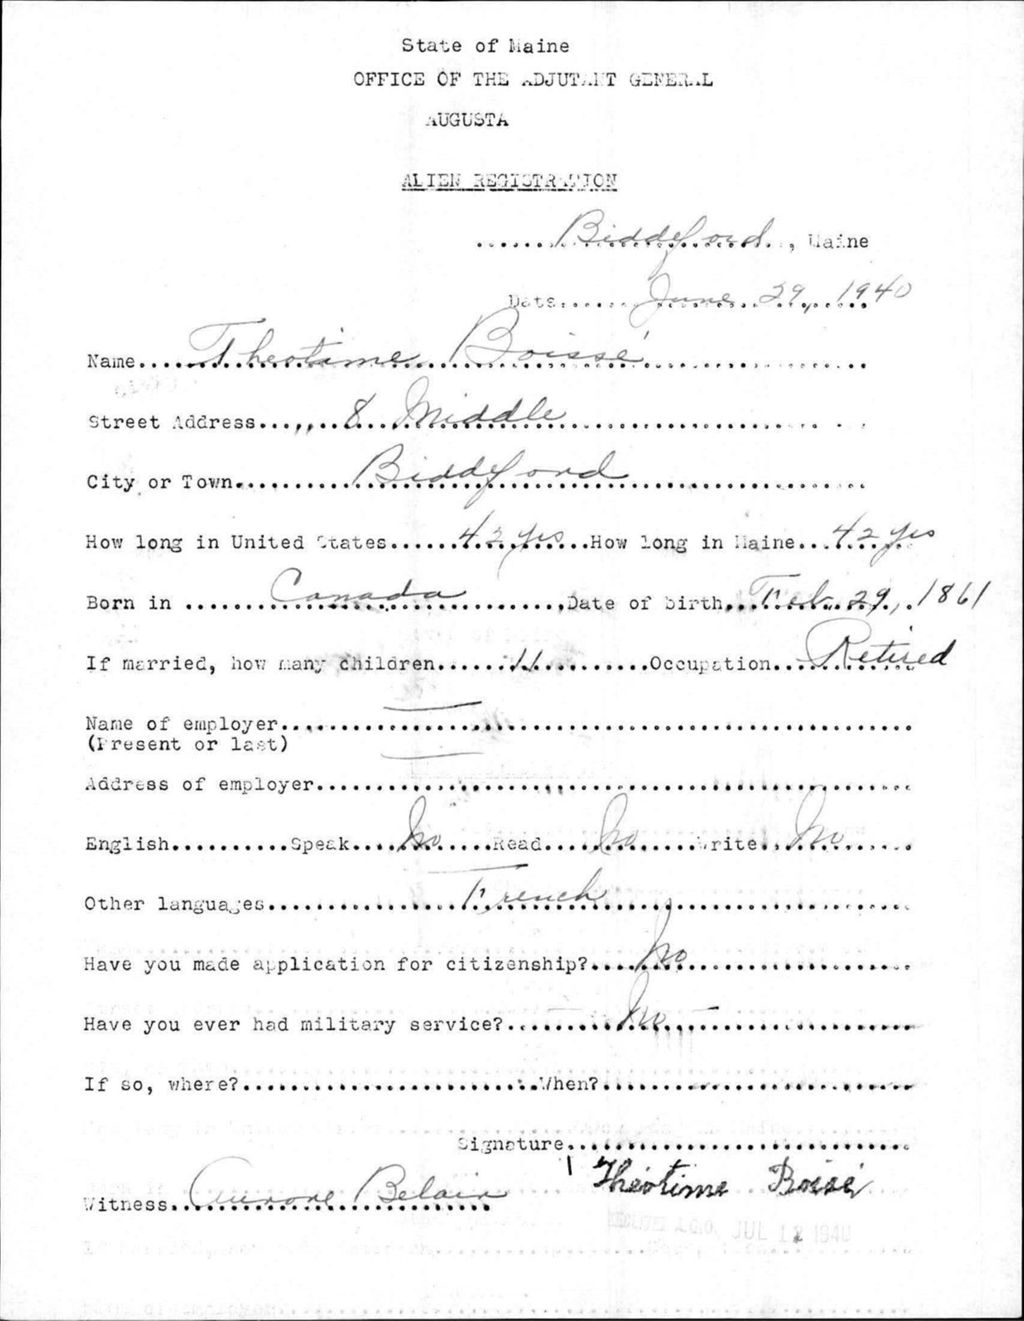 State of Maine
OFFICE OF THE ADJUTANT GENERAL
AUGUSTA
ALIEN REGISTRATION
Biddeford, Maine
Date June 29, 1940
Name Theotime Boissé
Street Address 8 Middle
City or Town Biddeford
How long in United States 42 yrs How long in Maine 42 yrs
Born in Canada Date of birth Feb. 29, 1861
If married, how many children 11 Occupation Retired
Name of employer —
(Present or last)
Address of employer —
English Speak No Read No Write No
Other languages French
Have you made application for citizenship? No
Have you ever had military service? No
If so, where? When?
Signature
Théotime Boisse
Witness Aurore Belair
RECEIVED A.G.O. JUL 12 1940